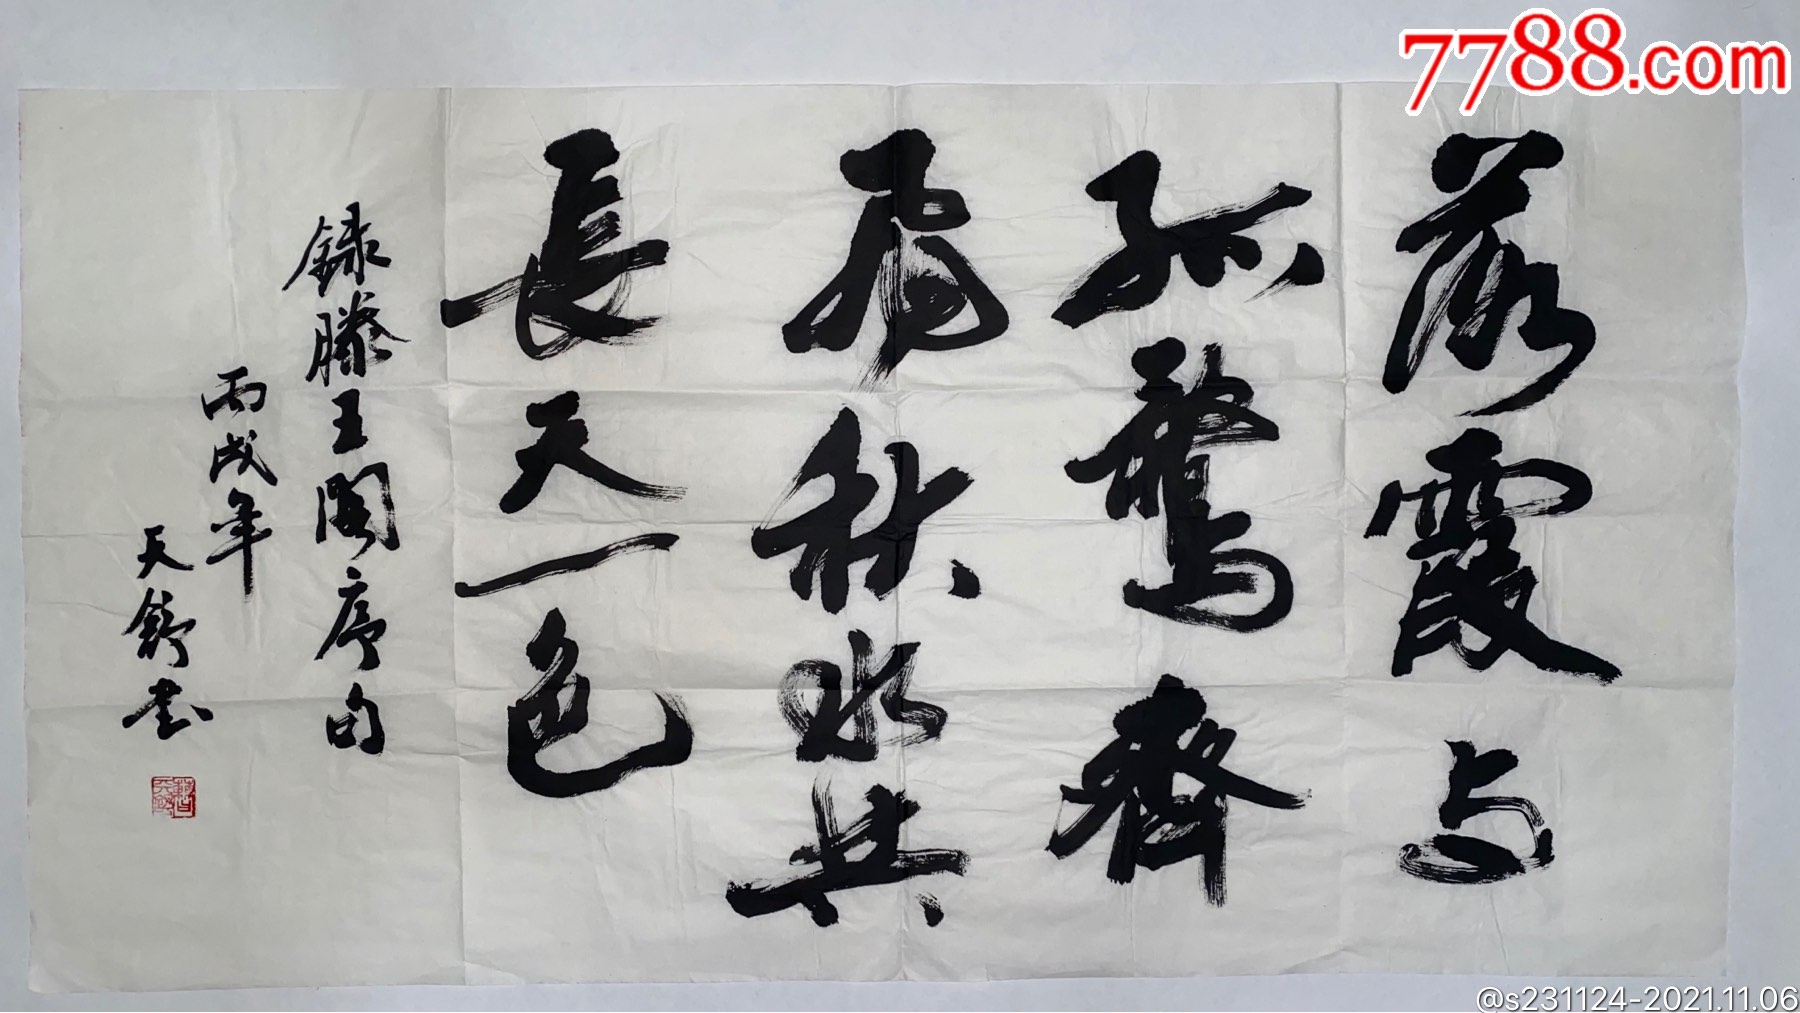 7788.com
落霞与
孤鹜齊
飛秋水共
長天一色
録滕王阁序句
丙戌年
天舒书
@s231124-2021.11.06